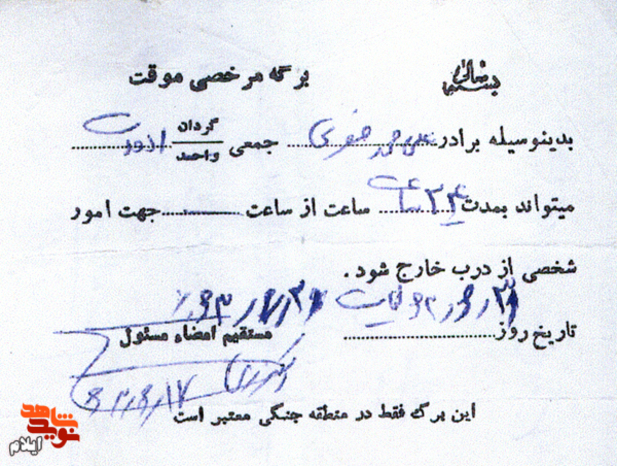 بسمه تعالی
برگه مرخصی موقت
بدینوسیله برادر علی محمد صفری جمعی گردان واحد
میتواند بمدت ۲۴ ساعت ساعت از ساعت جهت امور
شخصی از درب خارج شود.
تاریخ روز
مستقیم امضاء مسئول
این برگ فقط در منطقه جنگی معتبر است
نوید شاهد
ایلام